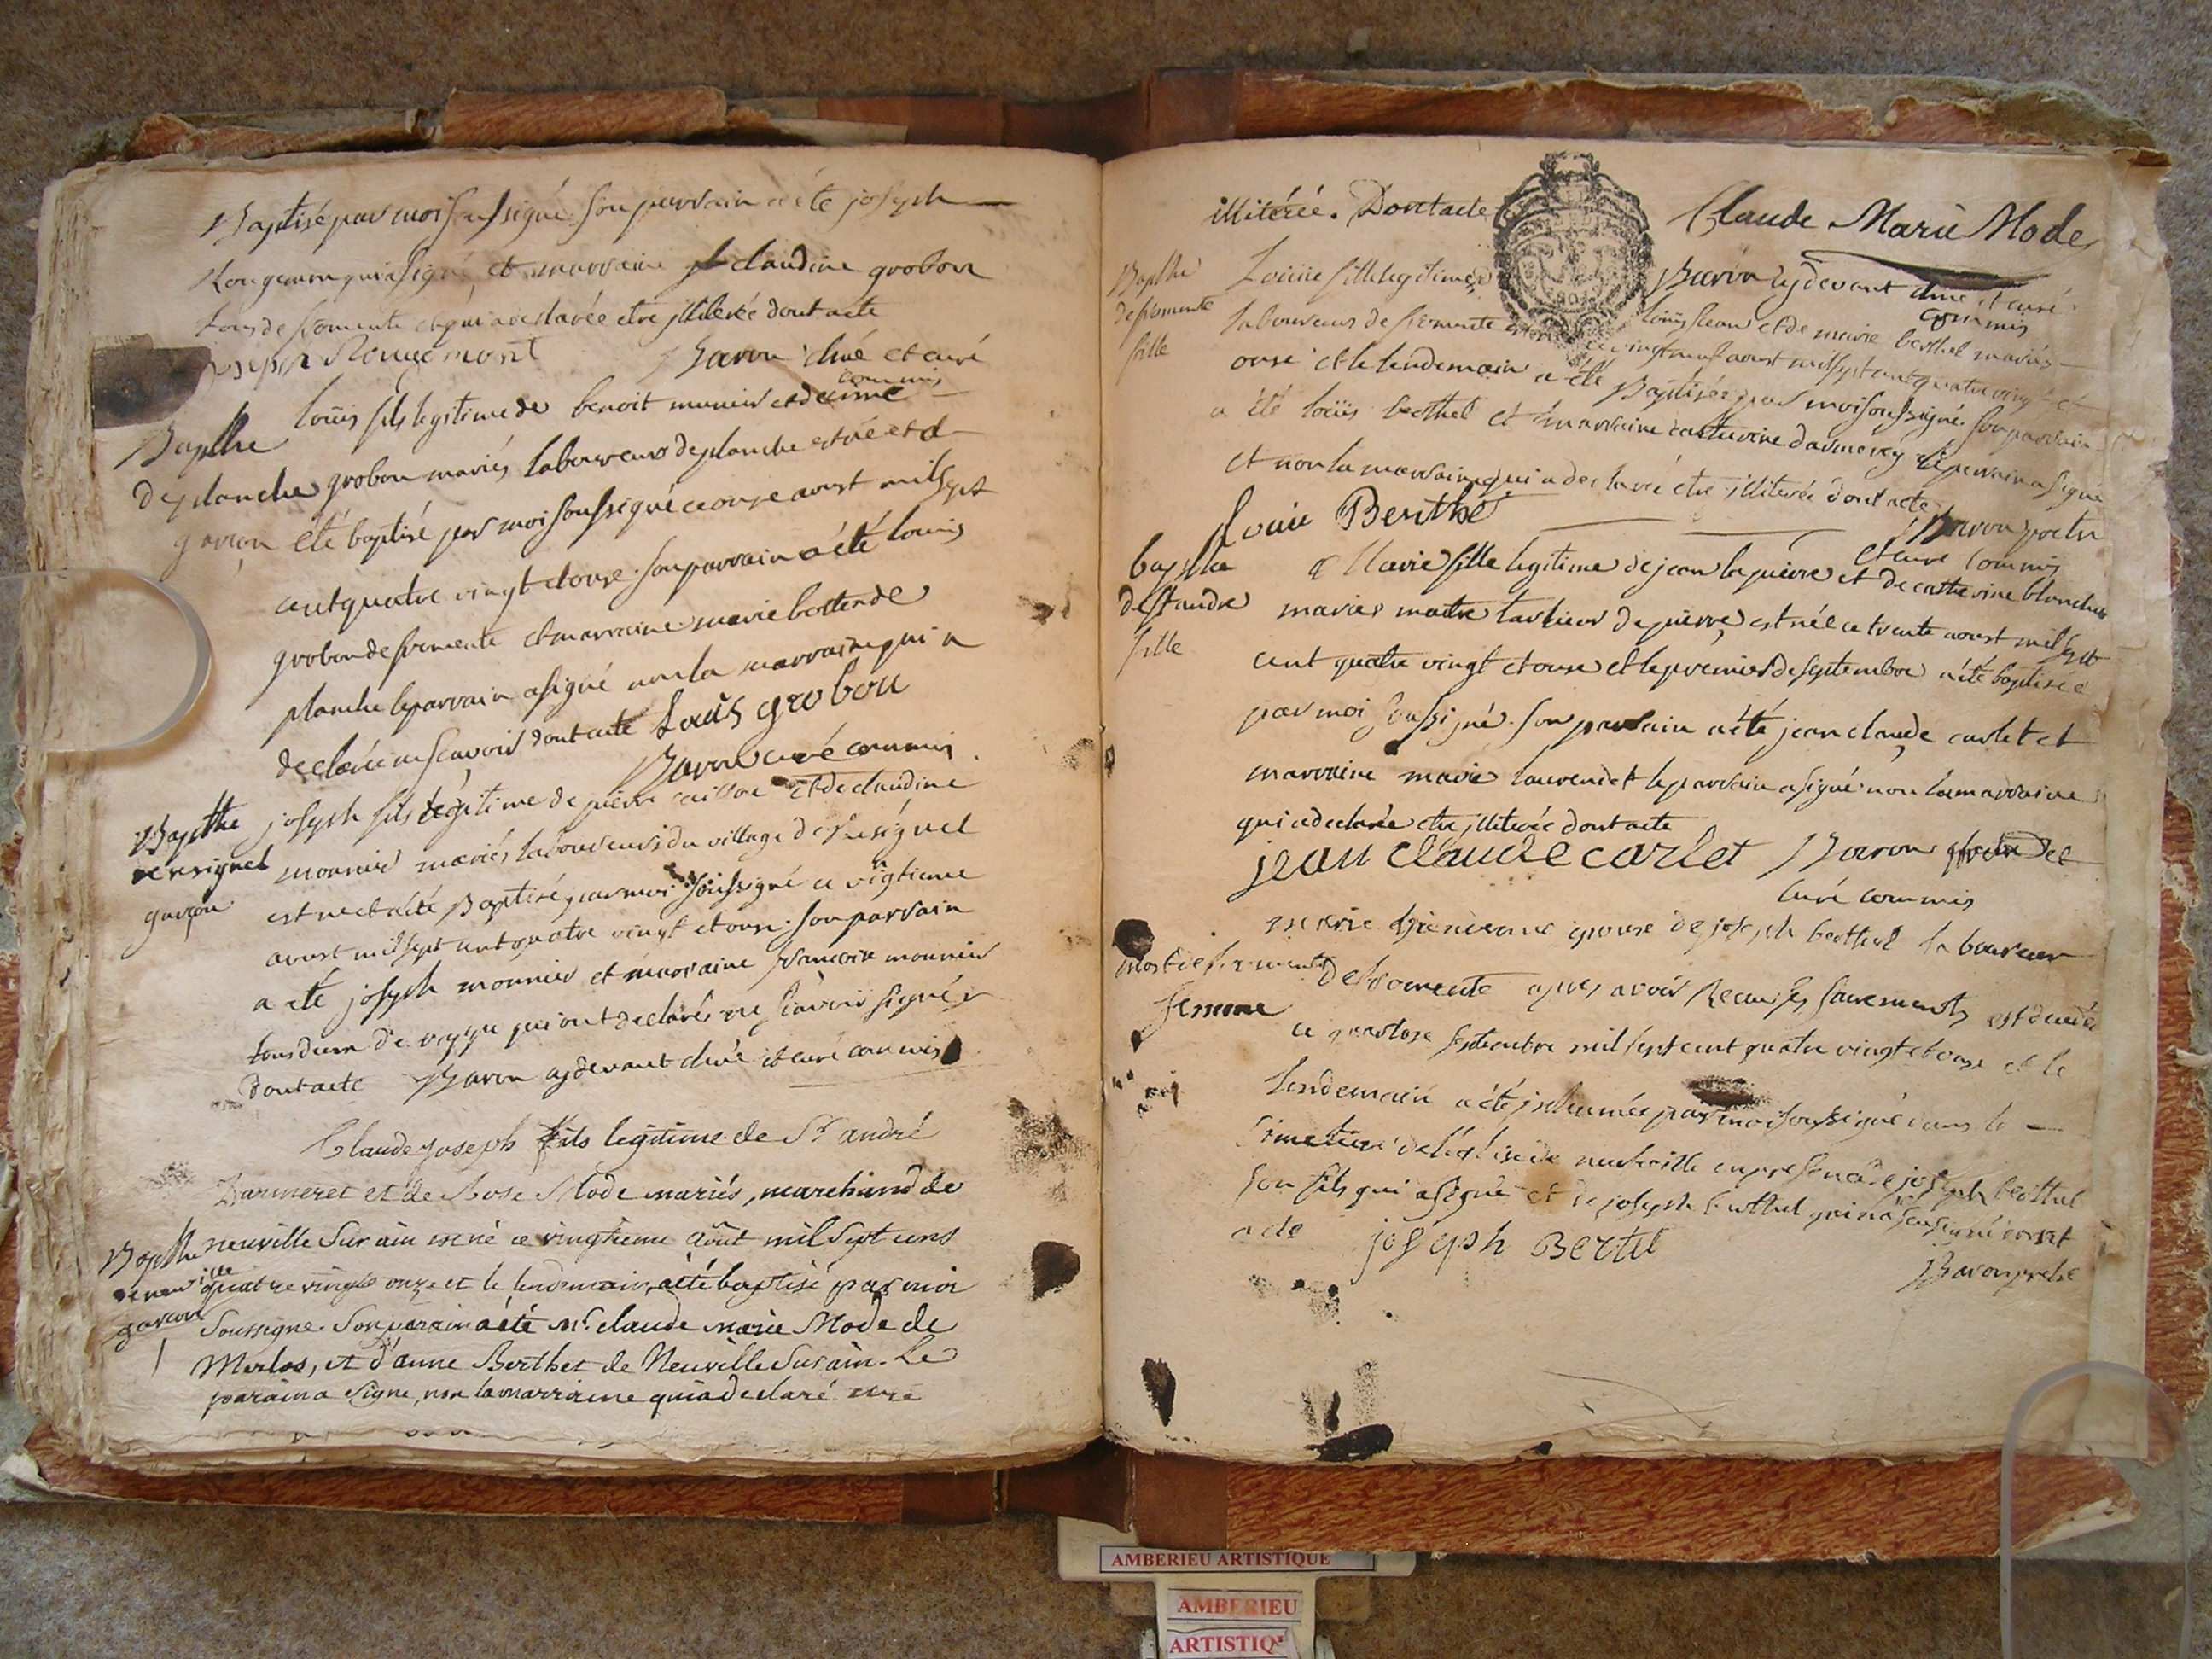 Baptisé par moi soussigné son parrain a été joseph
Rougemon qui a signé, et marraine claudine grobon
tous de fromente et qui a declarée etre illiterée dont acte
joseph Rougemont Baron curé
commis
Bapthe loüis fils legitime de benoit munier et de
de planche grobon mariés laboureurs de planche est né et a
garçon été baptisé par moi soussigné ce onze aoust mil sept
cent quatre vingt et onze. son parrain a été louis
grobon de fromente et marraine marie de
planche le parrain a signé non la marraine qui a
declarée ne scavoir dont acte Louis grobon
Baron curé commis
Bapthe joseph fils legitime de pierre et de claudine
de resignel monnier mariés laboureurs du village de resignel
garçon est né et a été Baptisé par moi soussigné ce vingtieme
aoust mil sept cent quatre vingt et onze. son parrain
a été joseph monnier et marraine francoise monnier
tous deux de qui ont declarés ne scavoir signer
dont acte Baron cydevant et curé commis
Claude joseph fils legitime de Sr andré
Darmeret et de Rose Mode mariés, marchand de
Bapthe neuville sur ain est né ce vingtieme août mil sept cens
de neuville quatre vingts onze et le lendemain, a été baptisé par moi
garcon soussigne. Son parain a été Mr. claude marie Mode de
Merlos, et d'anne Berthet de Neuville sur ain. Le
parain a signe, non la marraine qui a declaré etre
illitérée. Dont acte Claude Marie Mode
Baron cydevant et curé
commis
Bapthe Louise fille legitime de louis et de marie berthet mariés
de fromente laboureurs de fromente est née ce vingt neuf aoust mil sept cent quatre vingt et
fille onze et le lendemain a été Baptisée par moi soussigné. son parrain
a été loüis berthet et marraine catherine darmerey le parrain a signé
et non la marraine qui a declarée etre illiterée dont acte
Louis Berthet Baron
et curé commis
bapthe Marie fille legitime de jean la pierre et de catherine blanchet
de mariés maitre tailleur de pierre, est née ce trente aoust mil sept
fille cent quatre vingt et onze et le premier de septembre a été baptisée
par moi soussigné. son parrain a été jean claude carlet et
marraine marie laurendet le parrain a signé non la marraine
qui a declarée etre illiterée dont acte
jean claude carlet Baron
curé commis
marie epouse de joseph berthet laboureur
mort de fromente de fromente apres avoir Recu ses sacrements est
femme ce quatorze septembre mil sept cent quatre vingt et onze et le
lendemain a été inhumée par moi soussigné dans le
cimetiere de l'eglise de neuville en presence de joseph berthet
son fils qui a signé et de joseph berthet
acte joseph Bertet
Baron
AMBERIEU ARTISTIQUE
AMBERIEU
ARTISTIQ